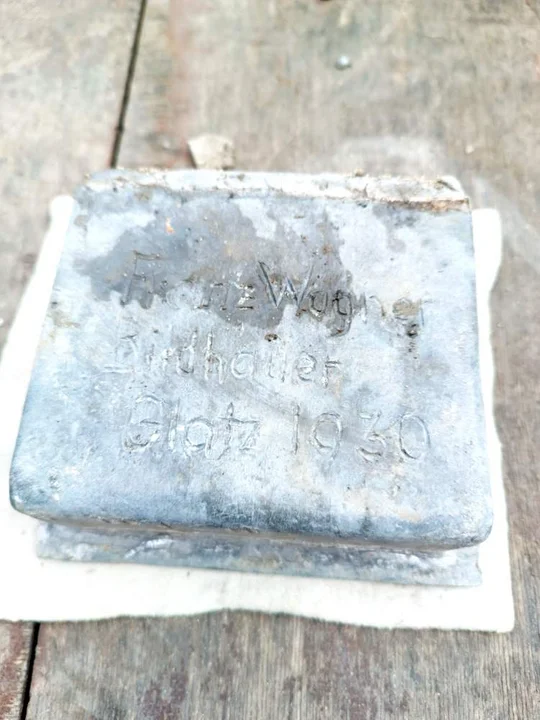 Franz Wagner
Glatz 1930